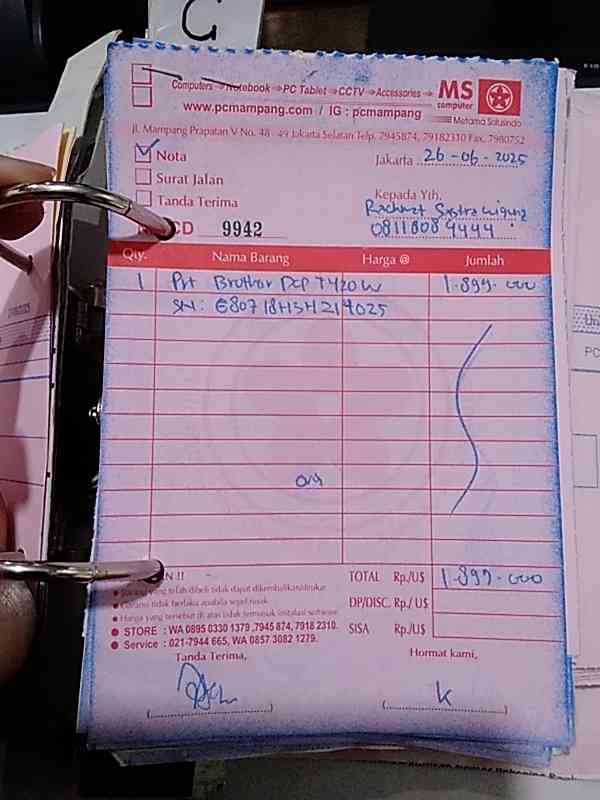 G
Computers ⇒ Notebook ⇒ PC Tablet ⇒ CCTV ⇒ Accessories ⇒ MS
computer
www.pcmampang.com / IG : pcmampang
Metama Solusindo
Jl. Mampang Prapatan V No. 48 - 49 Jakarta Selatan Telp. 7945874, 79182310 Fax. 7980752
Nota
Jakarta 26-06-2025
Surat Jalan
Tanda Terima
Kepada Yth,
Rachmat
CD 9942
Qty. Nama Barang Harga @ Jumlah
1 Prt Brother DCP T420W 1.899.000
SN: E80718H5H214025
TOTAL Rp./U$ 1.899.000
N !!
Barang yang telah dibeli tidak dapat dikembalikan/ditukar
Garansi tidak berlaku apabila segel rusak
DP/DISC. Rp./ U$
Harga yang tersebut di atas tidak termasuk instalasi software
STORE : WA 0895 0330 1379 ,7945 874, 7918 2310.
SISA Rp./U$
Service : 021-7944 665, WA 0857 3082 1279.
Tanda Terima,
Hormat kami,